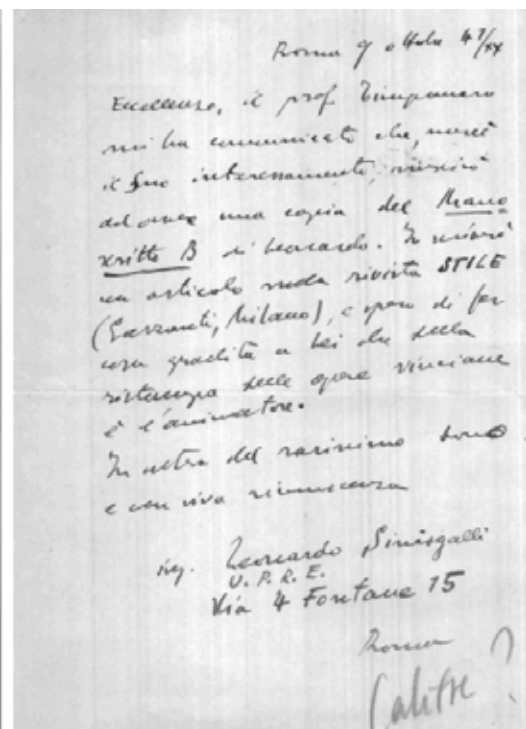 Roma 9 ottobre 41/XX
Eccellenza, il prof. Timpanaro
mi ha comunicato che, mercè
il Suo interessamento, riuscirò
ad avere una copia del Mano
scritto B di Leonardo. Io scriverò
un articolo nella rivista STILE
(Garzanti, Milano), e spero di far
cosa gradita a Lei che della
ristampa delle opere vinciane
è l'animatore.
In attesa del rarissimo dono
e con viva riconoscenza
ing. Leonardo Sinisgalli
U.P.R.E.
Via 4 Fontane 15
Roma
?